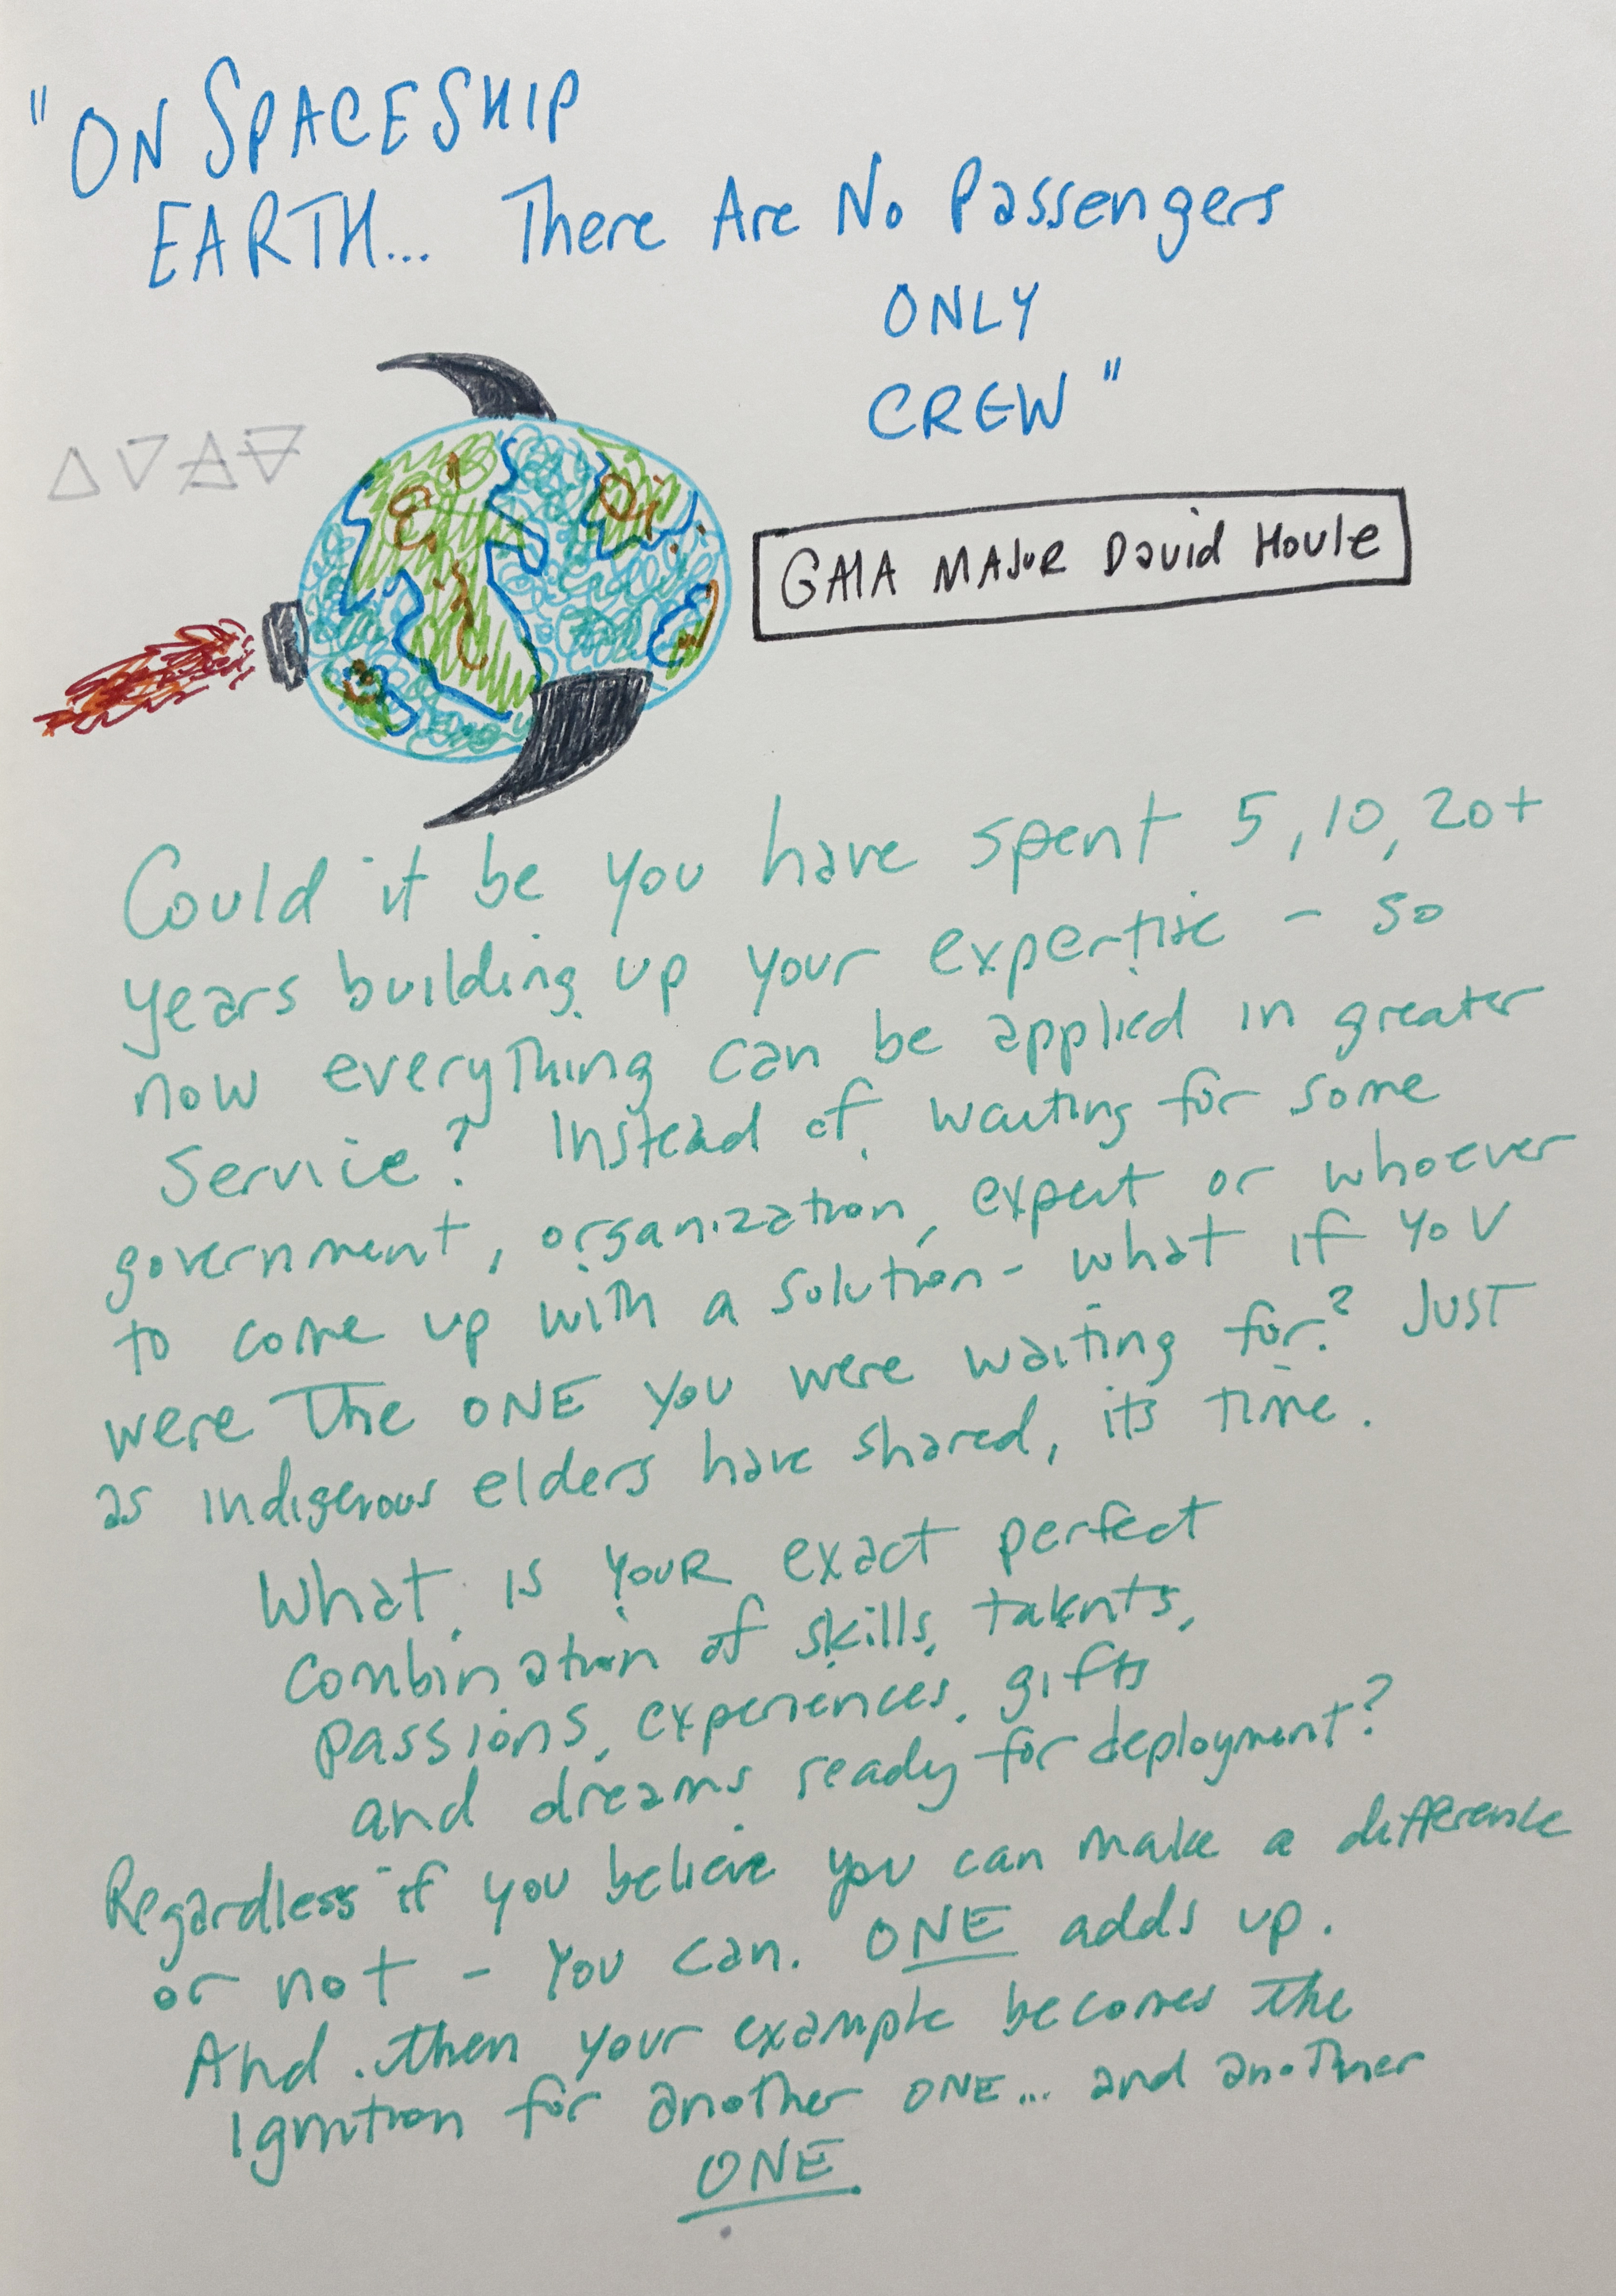 "ON SPACESHIP
EARTH... There Are No Passengers
ONLY
CREW"
GAIA MAJOR David Houle
Could it be you have spent 5, 10, 20+
years building up your expertise - so
now everything can be applied in greater
Service? Instead of waiting for some
government, organization, expert or whoever
to come up with a solution - what if YOU
were The ONE you were waiting for? JUST
as indigenous elders have shared, its time.
What is YOUR exact perfect
combination of skills, talents,
passions, experiences, gifts
and dreams ready for deployment?
Regardless if you believe you can make a difference
or not - You can. ONE adds up.
And then your example becomes the
Ignition for another ONE... and another
ONE.